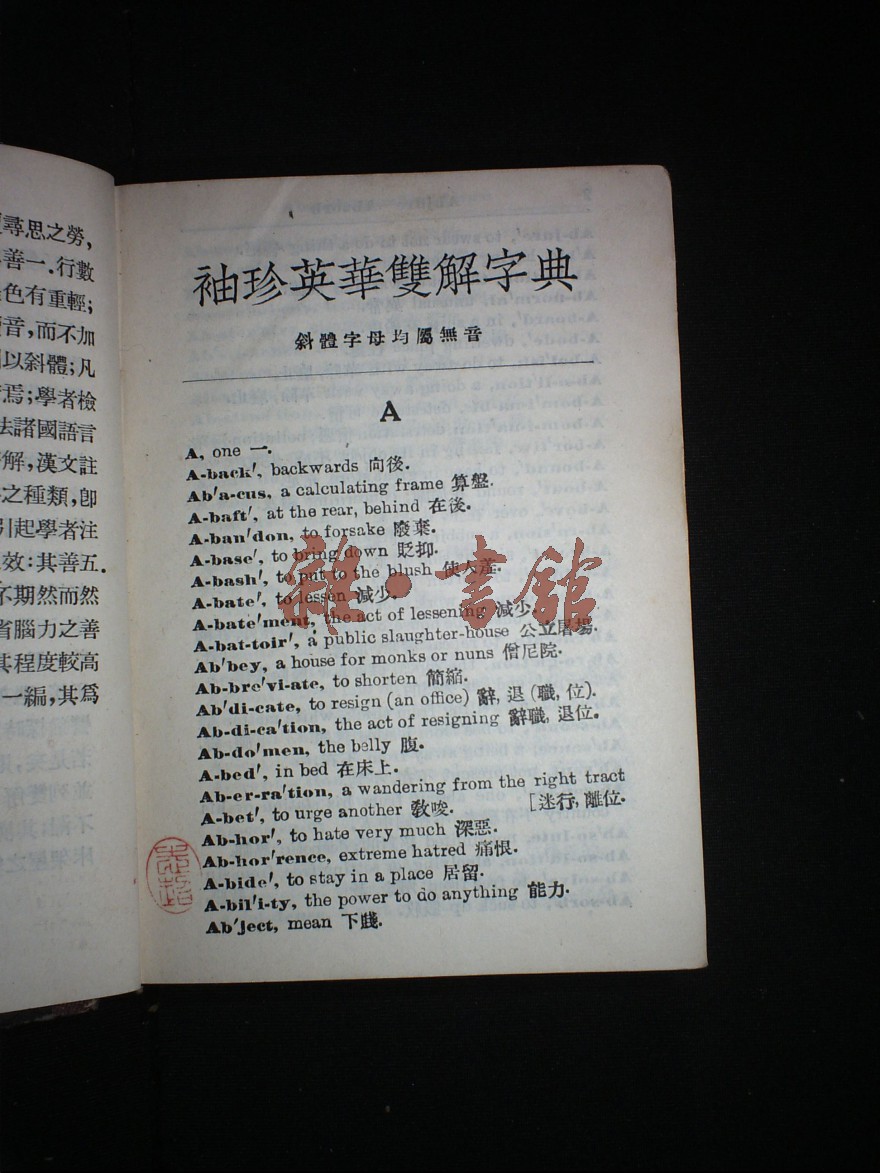 尋思之勞,
善一.行數
色有重輕;
音,而不加
以斜體;凡
焉;學者檢
法諸國語言
解,漢文註
之種類,卽
引起學者注
效:其善五.
不期然而然
省腦力之善
其程度較高
一編,其爲
袖珍英華雙解字典
斜體字母均屬無音
A
A, one 一.
A-back′, backwards 向後.
Ab′a-cus, a calculating frame 算盤.
A-baft′, at the rear, behind 在後.
A-ban′don, to forsake 廢棄.
A-base′, to bring down 貶抑.
A-bash′, to put to the blush 使人羞.
A-bate′, to lessen 減少.
A-bate′ment, the act of lessening 減少.
A-bat-toir′, a public slaughter-house 公立屠場.
Ab′bey, a house for monks or nuns 僧尼院.
Ab-bre′vi-ate, to shorten 簡縮.
Ab′di-cate, to resign (an office) 辭, 退 (職, 位).
Ab-di-ca′tion, the act of resigning 辭職, 退位.
Ab-do′men, the belly 腹.
A-bed′, in bed 在床上.
Ab-er-ra′tion, a wandering from the right tract
A-bet′, to urge another 敎唆. [迷行, 離位.
Ab-hor′, to hate very much 深惡.
Ab-hor′rence, extreme hatred 痛恨.
A-bide′, to stay in a place 居留.
A-bil′i-ty, the power to do anything 能力.
Ab′ject, mean 下賤.
雜·書館